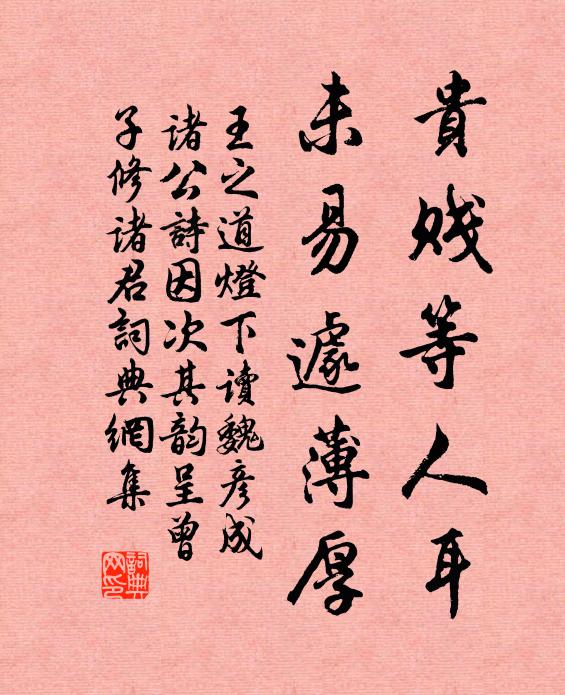 貴賤等人耳
未易遽薄厚
王之道燈下讀魏彥成
諸公詩因次其韵呈曾
子修諸君詞典網集
詞典
网印